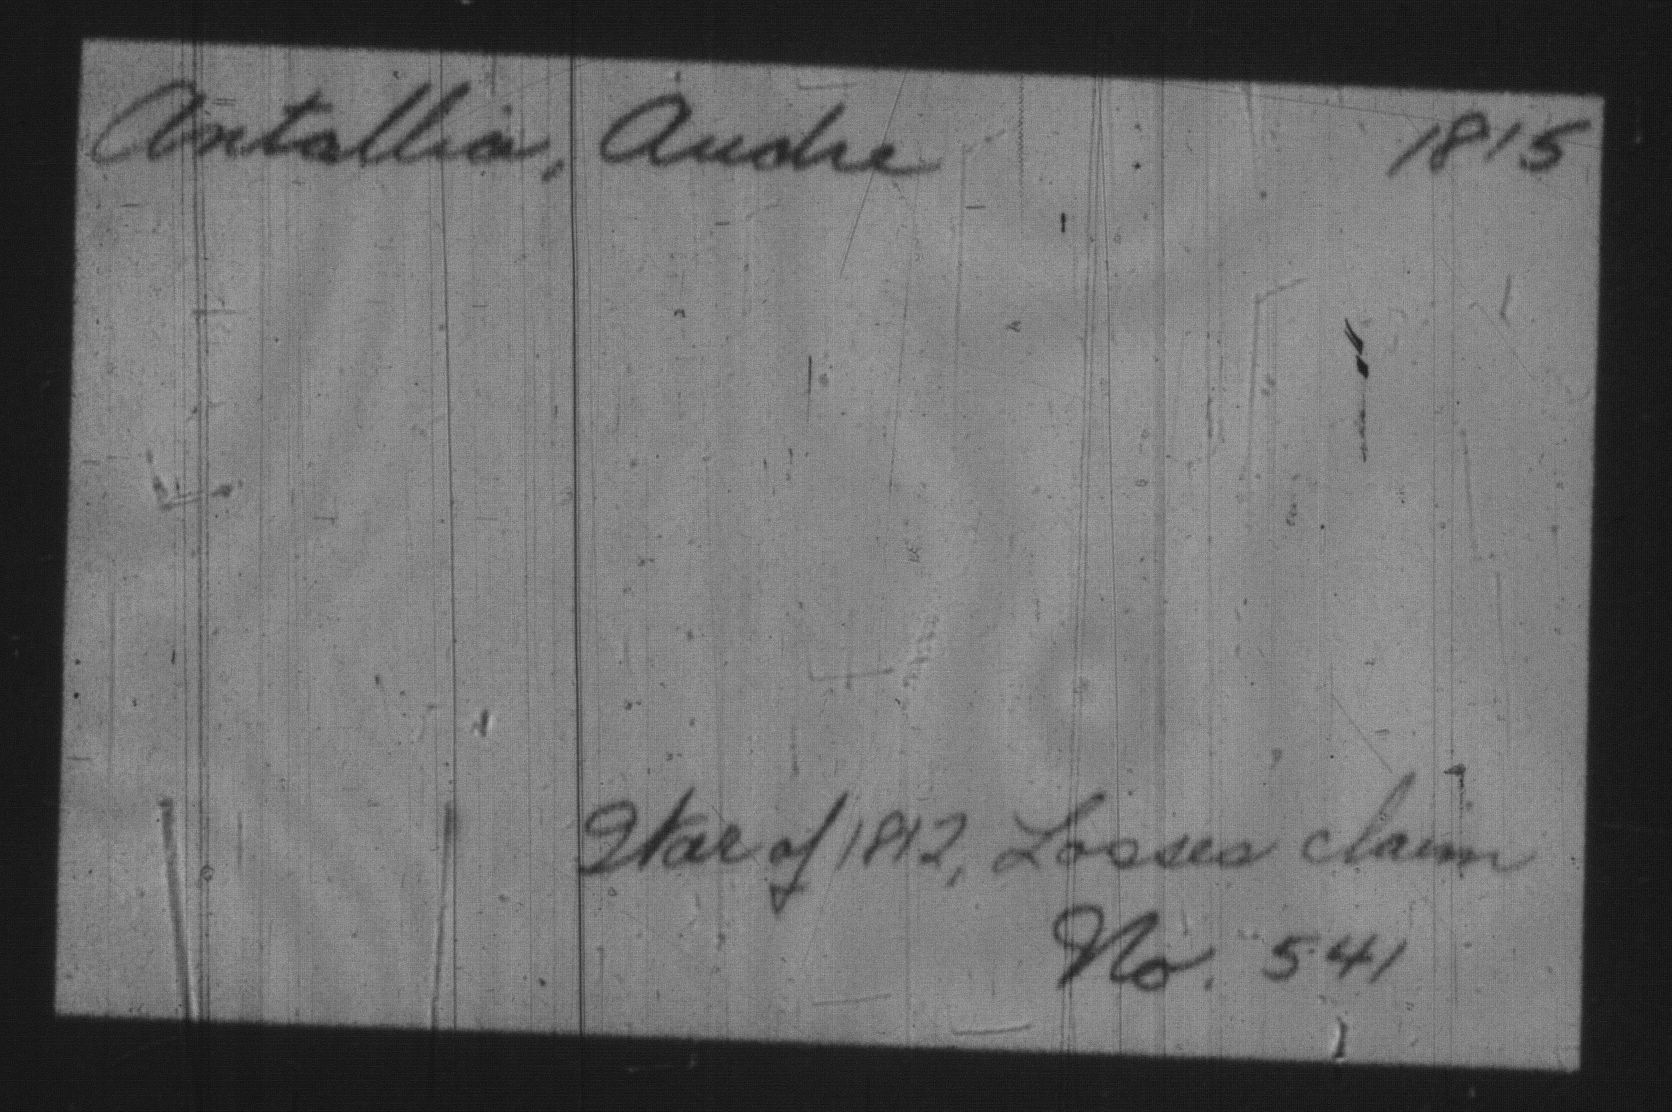 Antallia, Andre 1815
War of 1812, Losses claim
No. 541